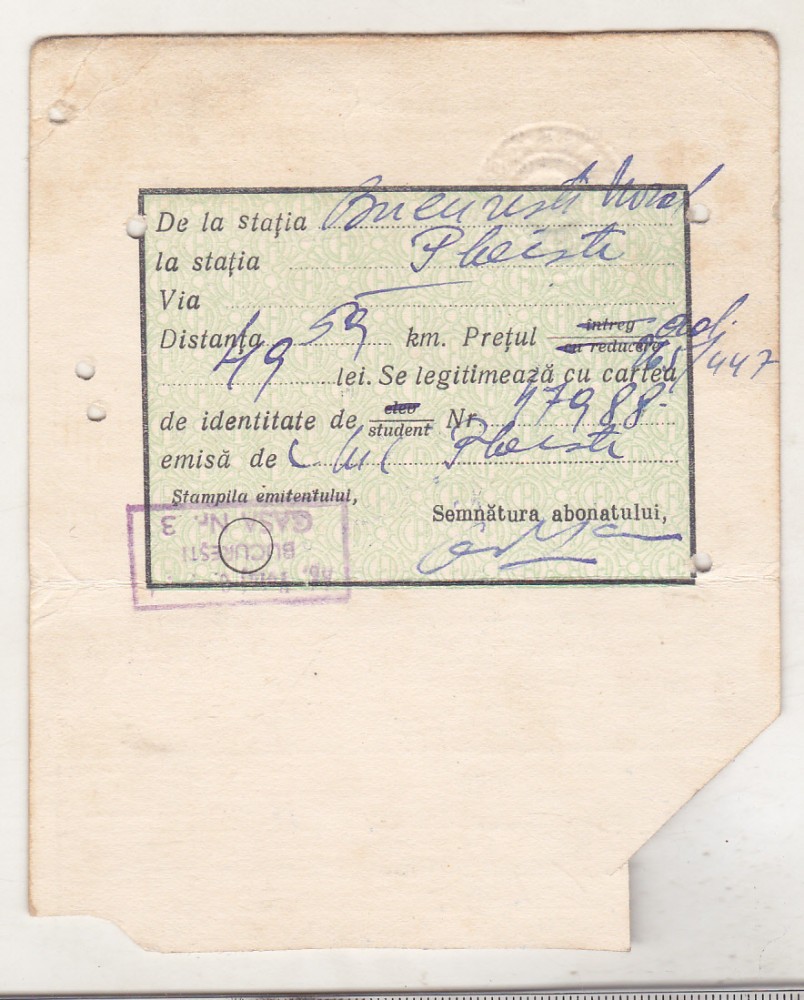 De la stația București Nord
la stația Ploiești
Via —
Distanța 59 km. Prețul întreg
cu reducere
49 lei. Se legitimează cu cartea
de identitate de elev
student Nr. 17988
emisă de Ploiești
Ștampila emitentului,
Semnătura abonatului,
CASA Nr. 3
BUCUREȘTI